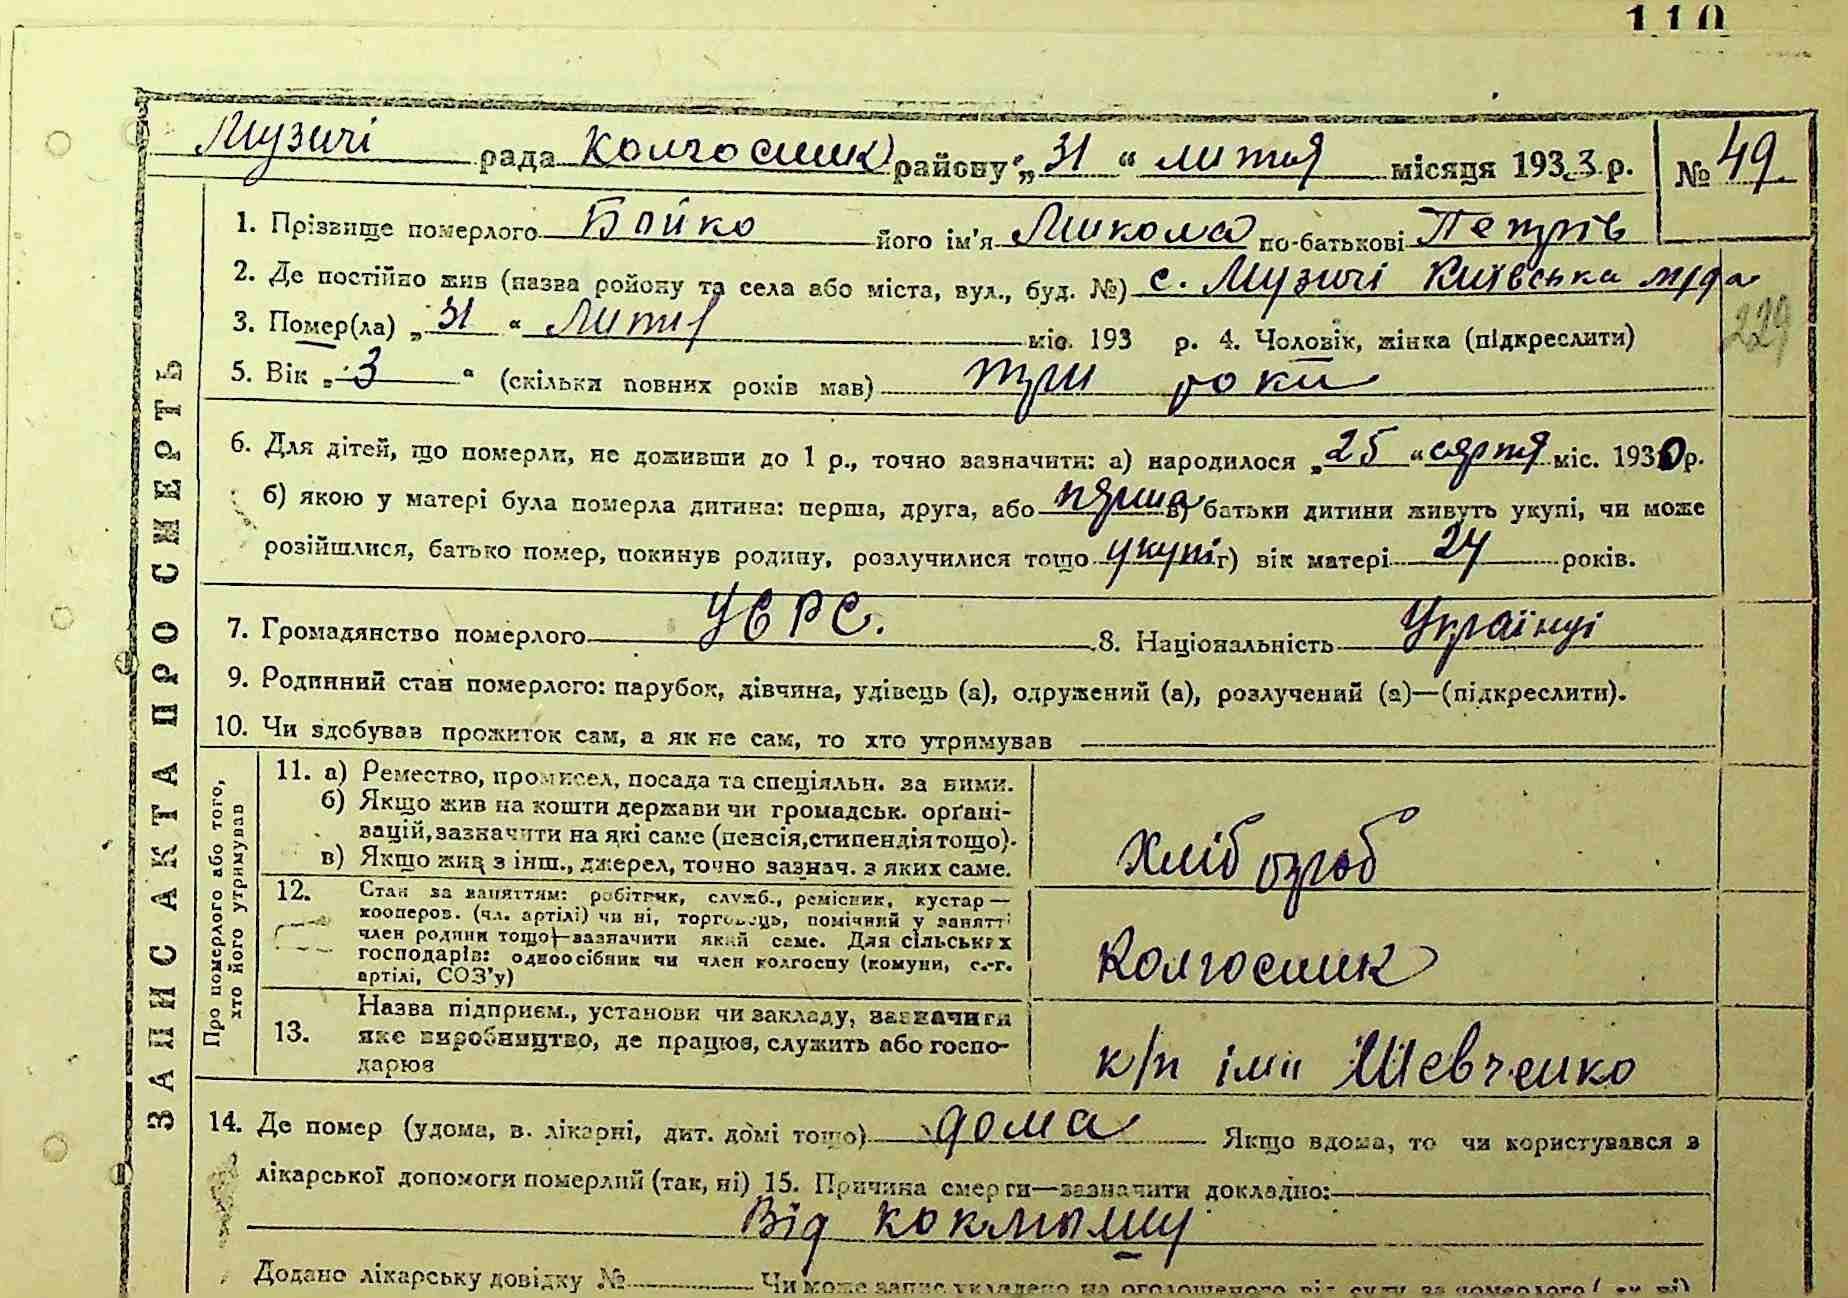 110
Музичі рада Колгосник району „31“ литня місяця 1933 р. № 49
1. Прізвище померлого Бойко його ім'я Микола по-батькові Петрів
2. Де постійно жив (назва ройону та села або міста, вул., буд. №) с. Музичі Київська
229
3. Помер(ла) „31“ міс. 193 р. 4. Чоловік, жінка (підкреслити)
5. Вік „3“ (скільки повних років мав) три роки
6. Для дітей, що померли, не доживши до 1 р., точно зазначити: а) народилося „25“ сярпня міс. 1930 р.
б) якою у матері була померла дитина: перша, друга, або перша в) батьки дитини живуть укупі, чи може
розійшлися, батько помер, покинув родину, розлучилися тощо укупі г) вік матері 24 років.
7. Громадянство померлого УСРС. 8. Національність Українці
9. Родинний стан померлого: парубок, дівчина, удівець (а), одружений (а), розлучений (а)—(підкреслити).
10. Чи здобував прожиток сам, а як не сам, то хто утримував
ЗАПИС АКТА ПРО СМЕРТЬ
Про померлого або того,
хто його утримував
11. а) Ремество, промисел, посада та спеціяльн. за ними.
б) Якщо жив на кошти держави чи громадськ. орґані-
зацій, зазначити на які саме (пенсія, стипендія тощо).
в) Якщо жив з інш., джерел, точно зазнач. з яких саме.
Хлібороб
12. Стан за заняттям: робітник, служб., ремісник, кустар—
кооперов. (чл. артілі) чи ні, торговець, помічний у занятті
член родини тощо)—зазначити який саме. Для сільських
господарів: одноосібник чи член колгоспу (комуни, с.-г.
артілі, СОЗ'у)
Колгосник
13. Назва підприєм., установи чи закладу, зазначити
яке виробництво, де працює, служить або госпо-
дарює
к/п імн Шевченко
14. Де помер (удома, в. лікарні, дит. домі тощо) дома Якщо вдома, то чи користувався з
лікарської допомоги померлий (так, ні) 15. Причина смерти—зазначити докладно:
Від коклюшу
Додано лікарську довідку № Чи може запис укладено на оголошеного від суду за померлого (так, ні)